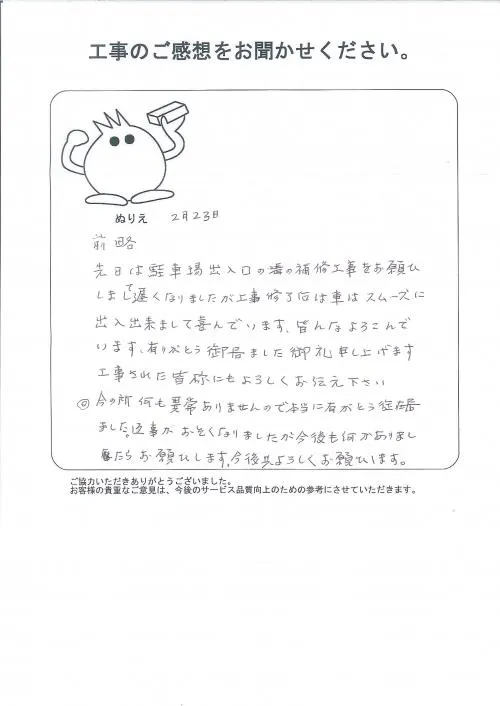 工事のご感想をお聞かせください。
ぬりえ 2月23日
前略
先日は駐車場出入口の溝の補修工事をお願ひ
しまして遅くなりましたが工事修了后は車はスムーズに
出入出来まして喜んでいます、皆んなよろこんで
います、有りがとう御居ました御礼申し上げます
工事された皆様にもよろしくお伝え下さい
◎今の所何も異常ありませんので本当に有がとう御居
ました。返事がおそくなりましたが今後も何かありまし
たらお願ひします。今後共よろしくお願ひます。
ご協力いただきありがとうございました。
お客様の貴重なご意見は、今後のサービス品質向上のための参考にさせていただきます。